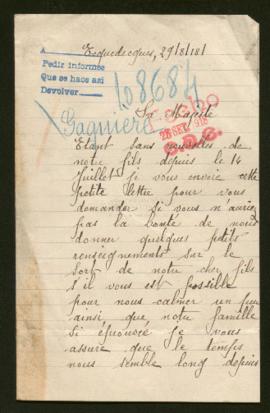 Ecquedecques, 29/8/181
A
Pedir informes
Que se hace asi
Devolver
68684
26 SEP. 1918
Gagnière
Sa Majesté
Etant sans nouvelles de
notre fils depuis le 14
Juillet je vous envoie cette
petite lettre pour vous
demander si vous n'auriez
pas la bonté de nous
donner quelques petits
renseignements sur le
sort de notre cher fils
s'il vous est possible
pour nous calmer un peu
ainsi que notre famille
si éprouvée je vous
assure que le temps
nous semble long depuis